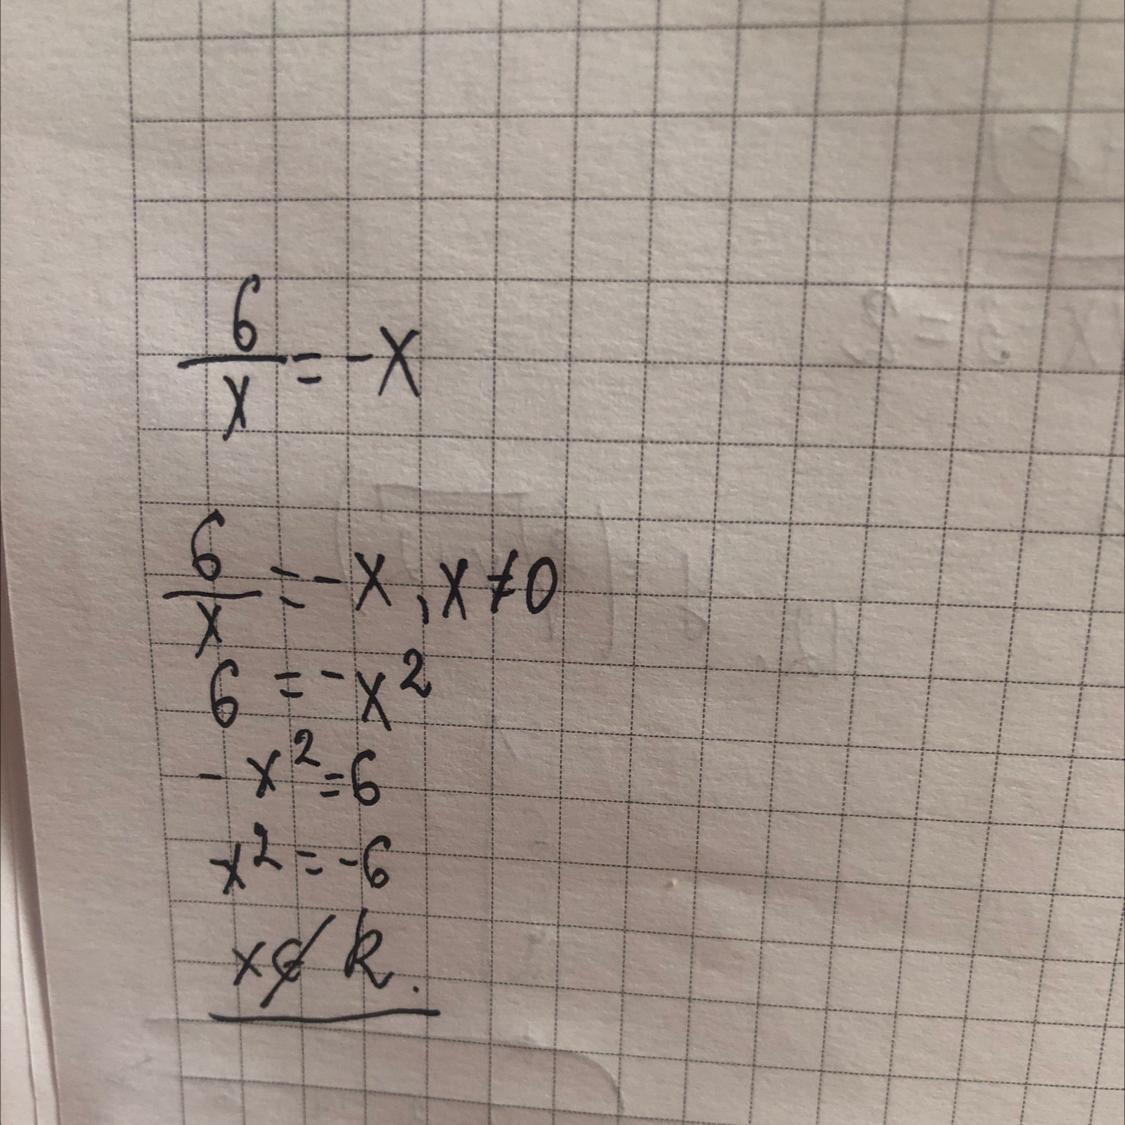 6/x = -x
6/x = -x, x ≠ 0
6 = -x²
-x² = 6
x² = -6
x ∉ R.